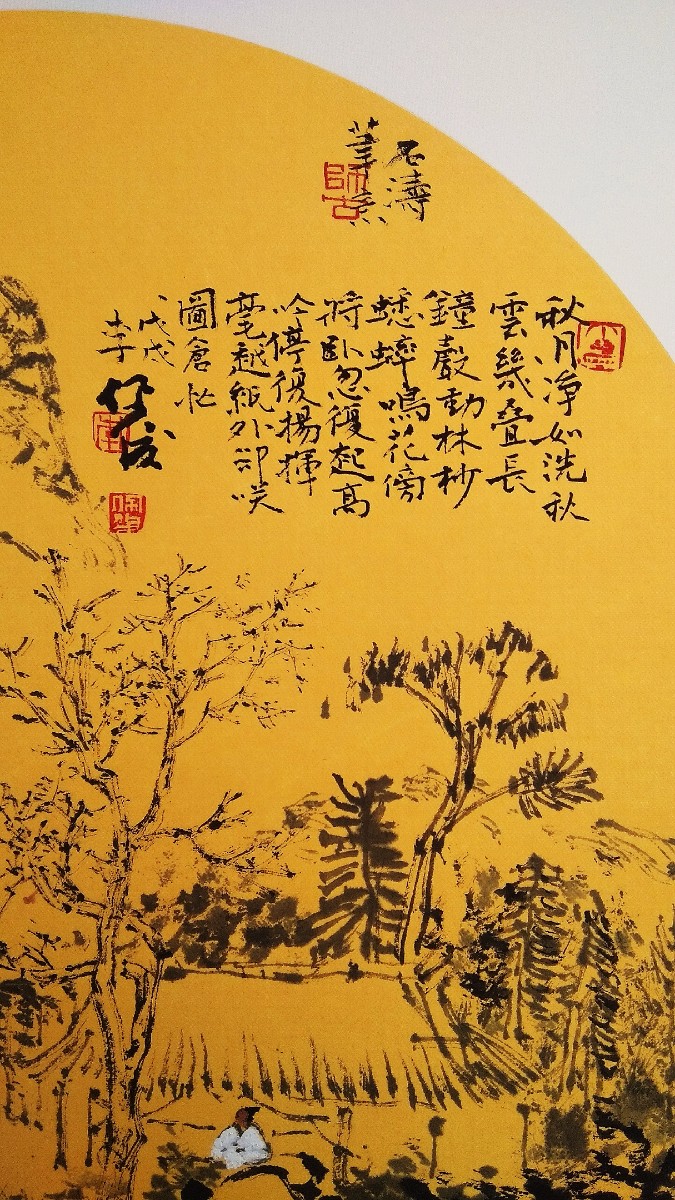 石濤
筆意
師古
秋月净如洗秋
雲幾疊長
鐘聲動林杪
蟋蟀鳴花傍
將卧忽復起高
吟停復揚揮
毫越紙外卻咲
圖倉忙
戊戌
李